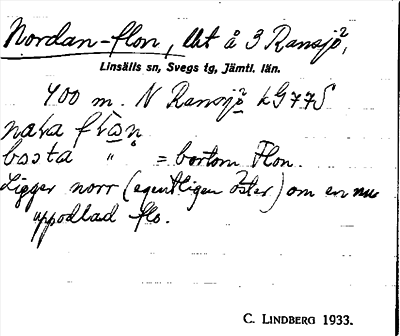 Nordan-flon, Ust å 3 Ransjö,
Linsälls sn, Svegs tg, Jämtl. län.
400 m. N Ransjö kG775
nǫka flǫn
bosta " = bortom Flon.
Ligger norr (egentligen öster) om en nu
uppodlad flo.
C. LINDBERG 1933.